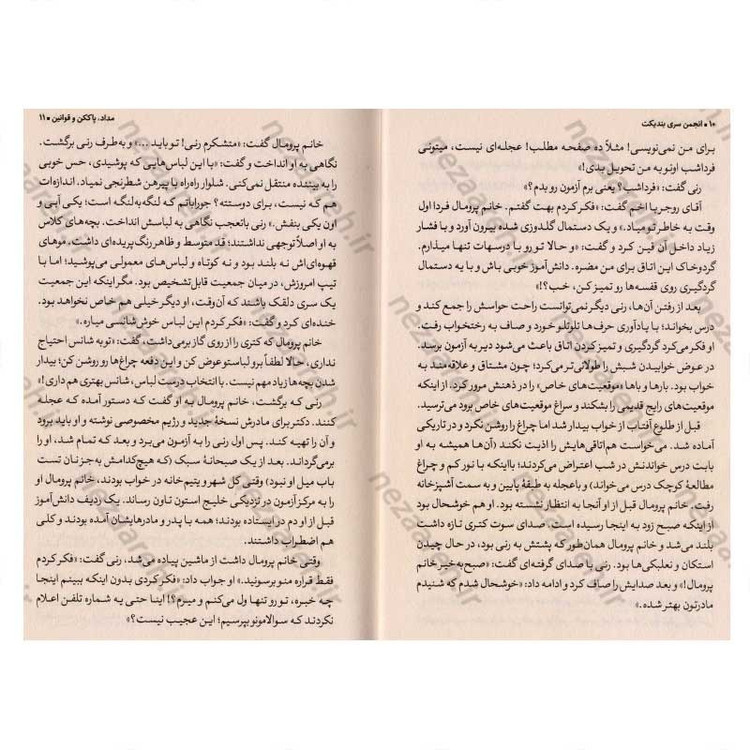 ۱۰ ■ انجمن سری بندیکت
برای من نمی‌نویسی! مثلاً ده صفحه مطلب! عجله‌ای نیست، میتونی
فرداشب اونو به من تحویل بدی!»
رنی گفت: «فرداشب؟ یعنی برم آزمون رو بدم؟»
آقای روجر با اخم گفت: «فکر کردم بهت گفتم. خانم پرومال فردا اول
وقت به خاطر تو میاد.» و یک دستمال گلدوزی شده بیرون آورد و با فشار
زیاد داخل آن فین کرد و گفت: «و حالا تو رو با درسهات تنها میذارم.
گردوخاک این اتاق برای من مضره. دانش‌آموز خوبی باش و با یه دستمال
گردگیری روی قفسه‌ها رو تمیز کن، خب؟!»
بعد از رفتن آن‌ها، رنی دیگر نمی‌توانست راحت حواسش را جمع کند و
درس بخواند؛ با یادآوری حرف‌ها تلوتلو خورد و صاف به رختخواب رفت.
او فکر می‌کرد گردگیری و تمیز کردن اتاق باعث می‌شود دیر به آزمون برسد.
در عوض خوابیدن شبش را طولانی‌تر می‌کرد؛ چون مشتاق و علاقه‌مند به
خواب بود. بارها و باها «موقعیت‌های خاص» را در ذهنش مرور کرد. از اینکه
موقعیت‌های رایج قدیمی را بشکند و سراغ موقعیت‌های خاص برود می‌ترسید.
قبل از طلوع آفتاب از خواب بیدار شد اما چراغ را روشن نکرد و در تاریکی
آماده شد. می‌خواست هم‌اتاقی‌هایش را اذیت نکند (آن‌ها همیشه به او
بابت درس خواندنش در شب اعتراض می‌کردند؛ بااینکه با نور کم و چراغ
مطالعهٔ کوچک درس می‌خواند) و باعجله به طبقهٔ پایین و به سمت آشپزخانه
رفت. خانم پرومال قبل از او آنجا به انتظار نشسته بود. او هم خوشحال بود
از اینکه صبح زود به اینجا رسیده است. صدای سوت کتری تازه داشت
بلند می‌شد و خانم پرومال همان‌طور که پشتش به رنی بود، در حال چیدن
استکان و نعلبکی‌ها بود. رنی با صدای گرفته‌ای گفت: «صبح به‌خیر خانم
پرومال!» و بعد صدایش را صاف کرد و ادامه داد: «خوشحال شدم که شنیدم
مادرتون بهتر شده.»
مداد، پاک‌کن و قوانین ■ ۱۱
خانم پرومال گفت: «متشکرم رنی! تو باید ...» و به‌طرف رنی برگشت.
نگاهی به او انداخت و گفت: «با این لباس‌هایی که پوشیدی، حس خوبی
را به بیننده منتقل نمی‌کنی. شلوار راه‌راه با پیرهن شطرنجی نمیاد. اندازه‌ات
هم که نیست، برای دوستته؟ جوراباتم که لنگه‌به‌لنگه است؛ یکی آبی و
اون یکی بنفش.» رنی باتعجب نگاهی به لباسش انداخت. بچه‌های کلاس
به او اصلاً توجهی نداشتند؛ قد متوسط و ظاهر رنگ‌پریده‌ای داشت، موهای
قهوه‌ای‌اش نه بلند بود و نه کوتاه و لباس‌های معمولی می‌پوشید؛ اما با
تیپ امروزش، در میان جمعیت قابل‌تشخیص بود. مگر اینکه این جمعیت
یک سری دلقک باشند که آن‌وقت، او دیگر خیلی هم خاص نخواهد بود.
خنده‌ای کرد و گفت: «فکر کردم این لباس خوش‌شانسی میاره.»
خانم پرومال که کتری را از روی گاز برمی‌داشت، گفت: «تو به شانس احتیاج
نداری، حالا لطفاً برو لباستو عوض کن و این دفعه چراغ‌ها رو روشن کن؛ بیدار
شدن بچه‌ها زیاد مهم نیست. با انتخاب درست لباس، شانس بهتری هم داری!»
رنی که برگشت، خانم پرومال به او گفت که دستور آمده که عجله
کنند. دکتر برای مادرش نسخهٔ جدید و رژیم مخصوصی نوشته و او باید برود
و آن را تهیه کند. پس اول رنی را به آزمون می‌برد و بعد که تمام شد، او را
برمی‌گرداند. بعد از یک صبحانهٔ سبک (که هیچ‌کدامش به‌جز نان تست
باب میل او نبود) وقتی کل شهر و یتیم خانه در خواب بودند، خانم پرومال او
را به مرکز آزمون در نزدیکی خلیج استون تاون رساند. یک ردیف دانش‌آموز
قبل از او دم در ایستاده بودند؛ همه با پدر و مادرهایشان آمده بودند و کلی
هم اضطراب داشتند.
وقتی خانم پرومال داشت از ماشین پیاده می‌شد، رنی گفت: «فکر کردم
فقط قراره منو برسونید.» او جواب داد: «فکر کردی بدون اینکه ببینم اینجا
چه خبره، تو رو تنها ول می‌کنم و میرم؟! اینا حتی یه شماره تلفن اعلام
نکردند که سوالامونو بپرسیم؛ این عجیب نیست؟»
nezaareh.ir